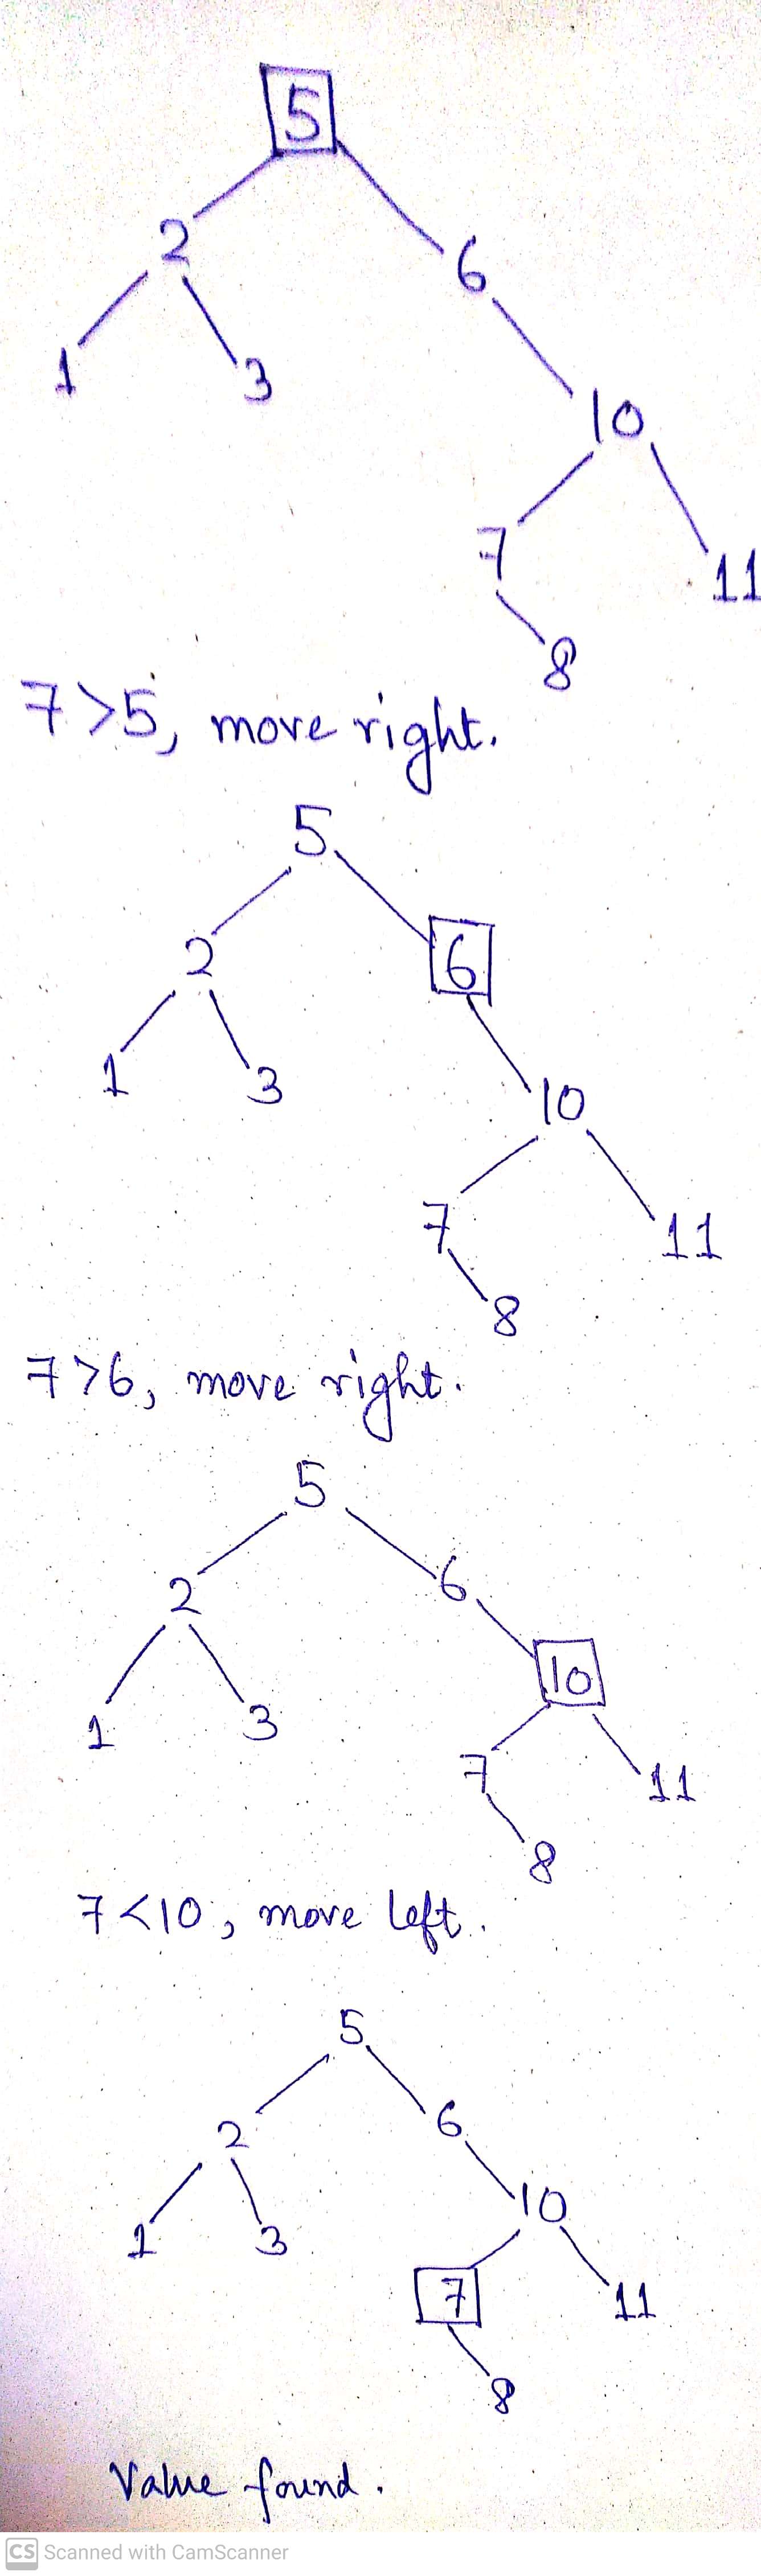 5
2
6
1
3
10
7
11
8
7>5, move right.
5
2
6
1
3
10
7
11
8
7>6, move right.
5
2
6
10
1
3
7
11
8
7<10, move left.
5
2
6
10
1
3
7
11
8
Value found.
CS Scanned with CamScanner